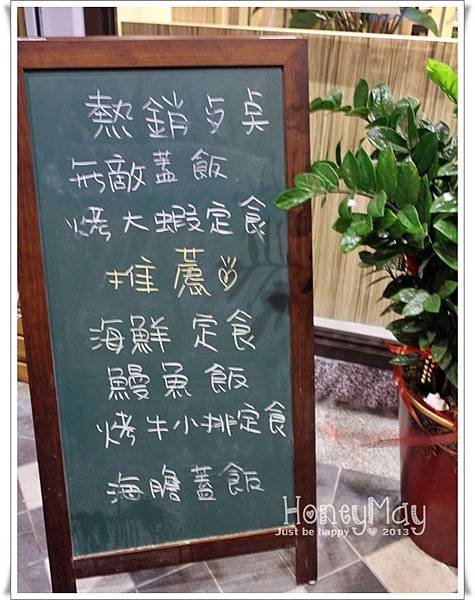 熱銷歺桌
無敵蓋飯
烤大蝦定食
推薦
海鮮定食
鰻魚飯
烤牛小排定食
海膽蓋飯
HoneyMay
Just be happy 2013